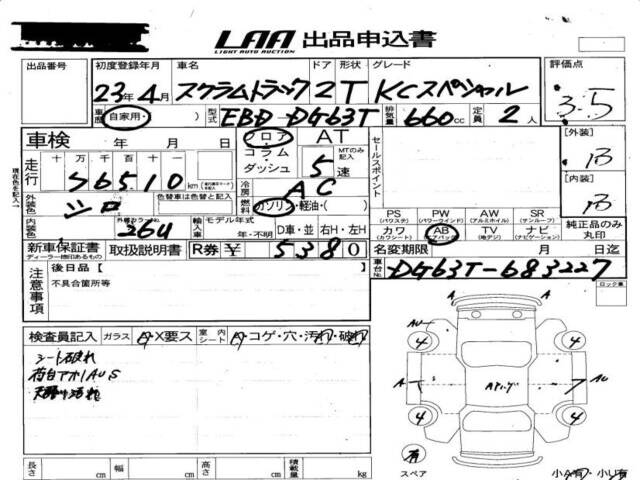 LAA 出品申込書
LIGHT AUTO AUCTION
出品番号 初度登録年月 車名 ドア 形状 グレード 評価点
23年4月 スクラムトラック 2 T KCスペシャル 3.5
車歴 自家用・( ) 型式 EBD-DG63T 排気量 660cc 定員 2人
車検 年 月 日 フロア AT セールスポイント [外装] B
コラム・ダッシュ MTのみ記入 5速
走行 十万千百十 76510 km [内装] B
冷房 AC
外装色 シロ 色替車は色替と記入 燃料 ガソリン・軽油・( )
現在色を記入→
PS (パワステ) PW (パワーウインド) AW (アルミホイル) SR (サンルーフ) 純正品のみ丸印
内装色 外装カラーNo. 26U 輸入車 モデル年式 年・不明 D車・並 右H・左H カワ (カワシート) AB (エアバック) TV (地デジ) ナビ (ナビゲーション)
新車保証書 ディーラー捺印あるもの 取扱説明書 R券 ¥ 5380 名変期限 月 日迄
車台No. DG63T-683227
注意事項 後日品 [ ]
不具合箇所等
ロック車
検査員記入 ガラス A・X要ス 室内シート A・コゲ・穴・汚れ・破れ
シート破れ
荷台アオリAUS
A A
AU
4 4
A APいタ AU
4 4
有
スペア
長さ cm 幅 cm 高さ cm 積載量 kg 小A有・小U有